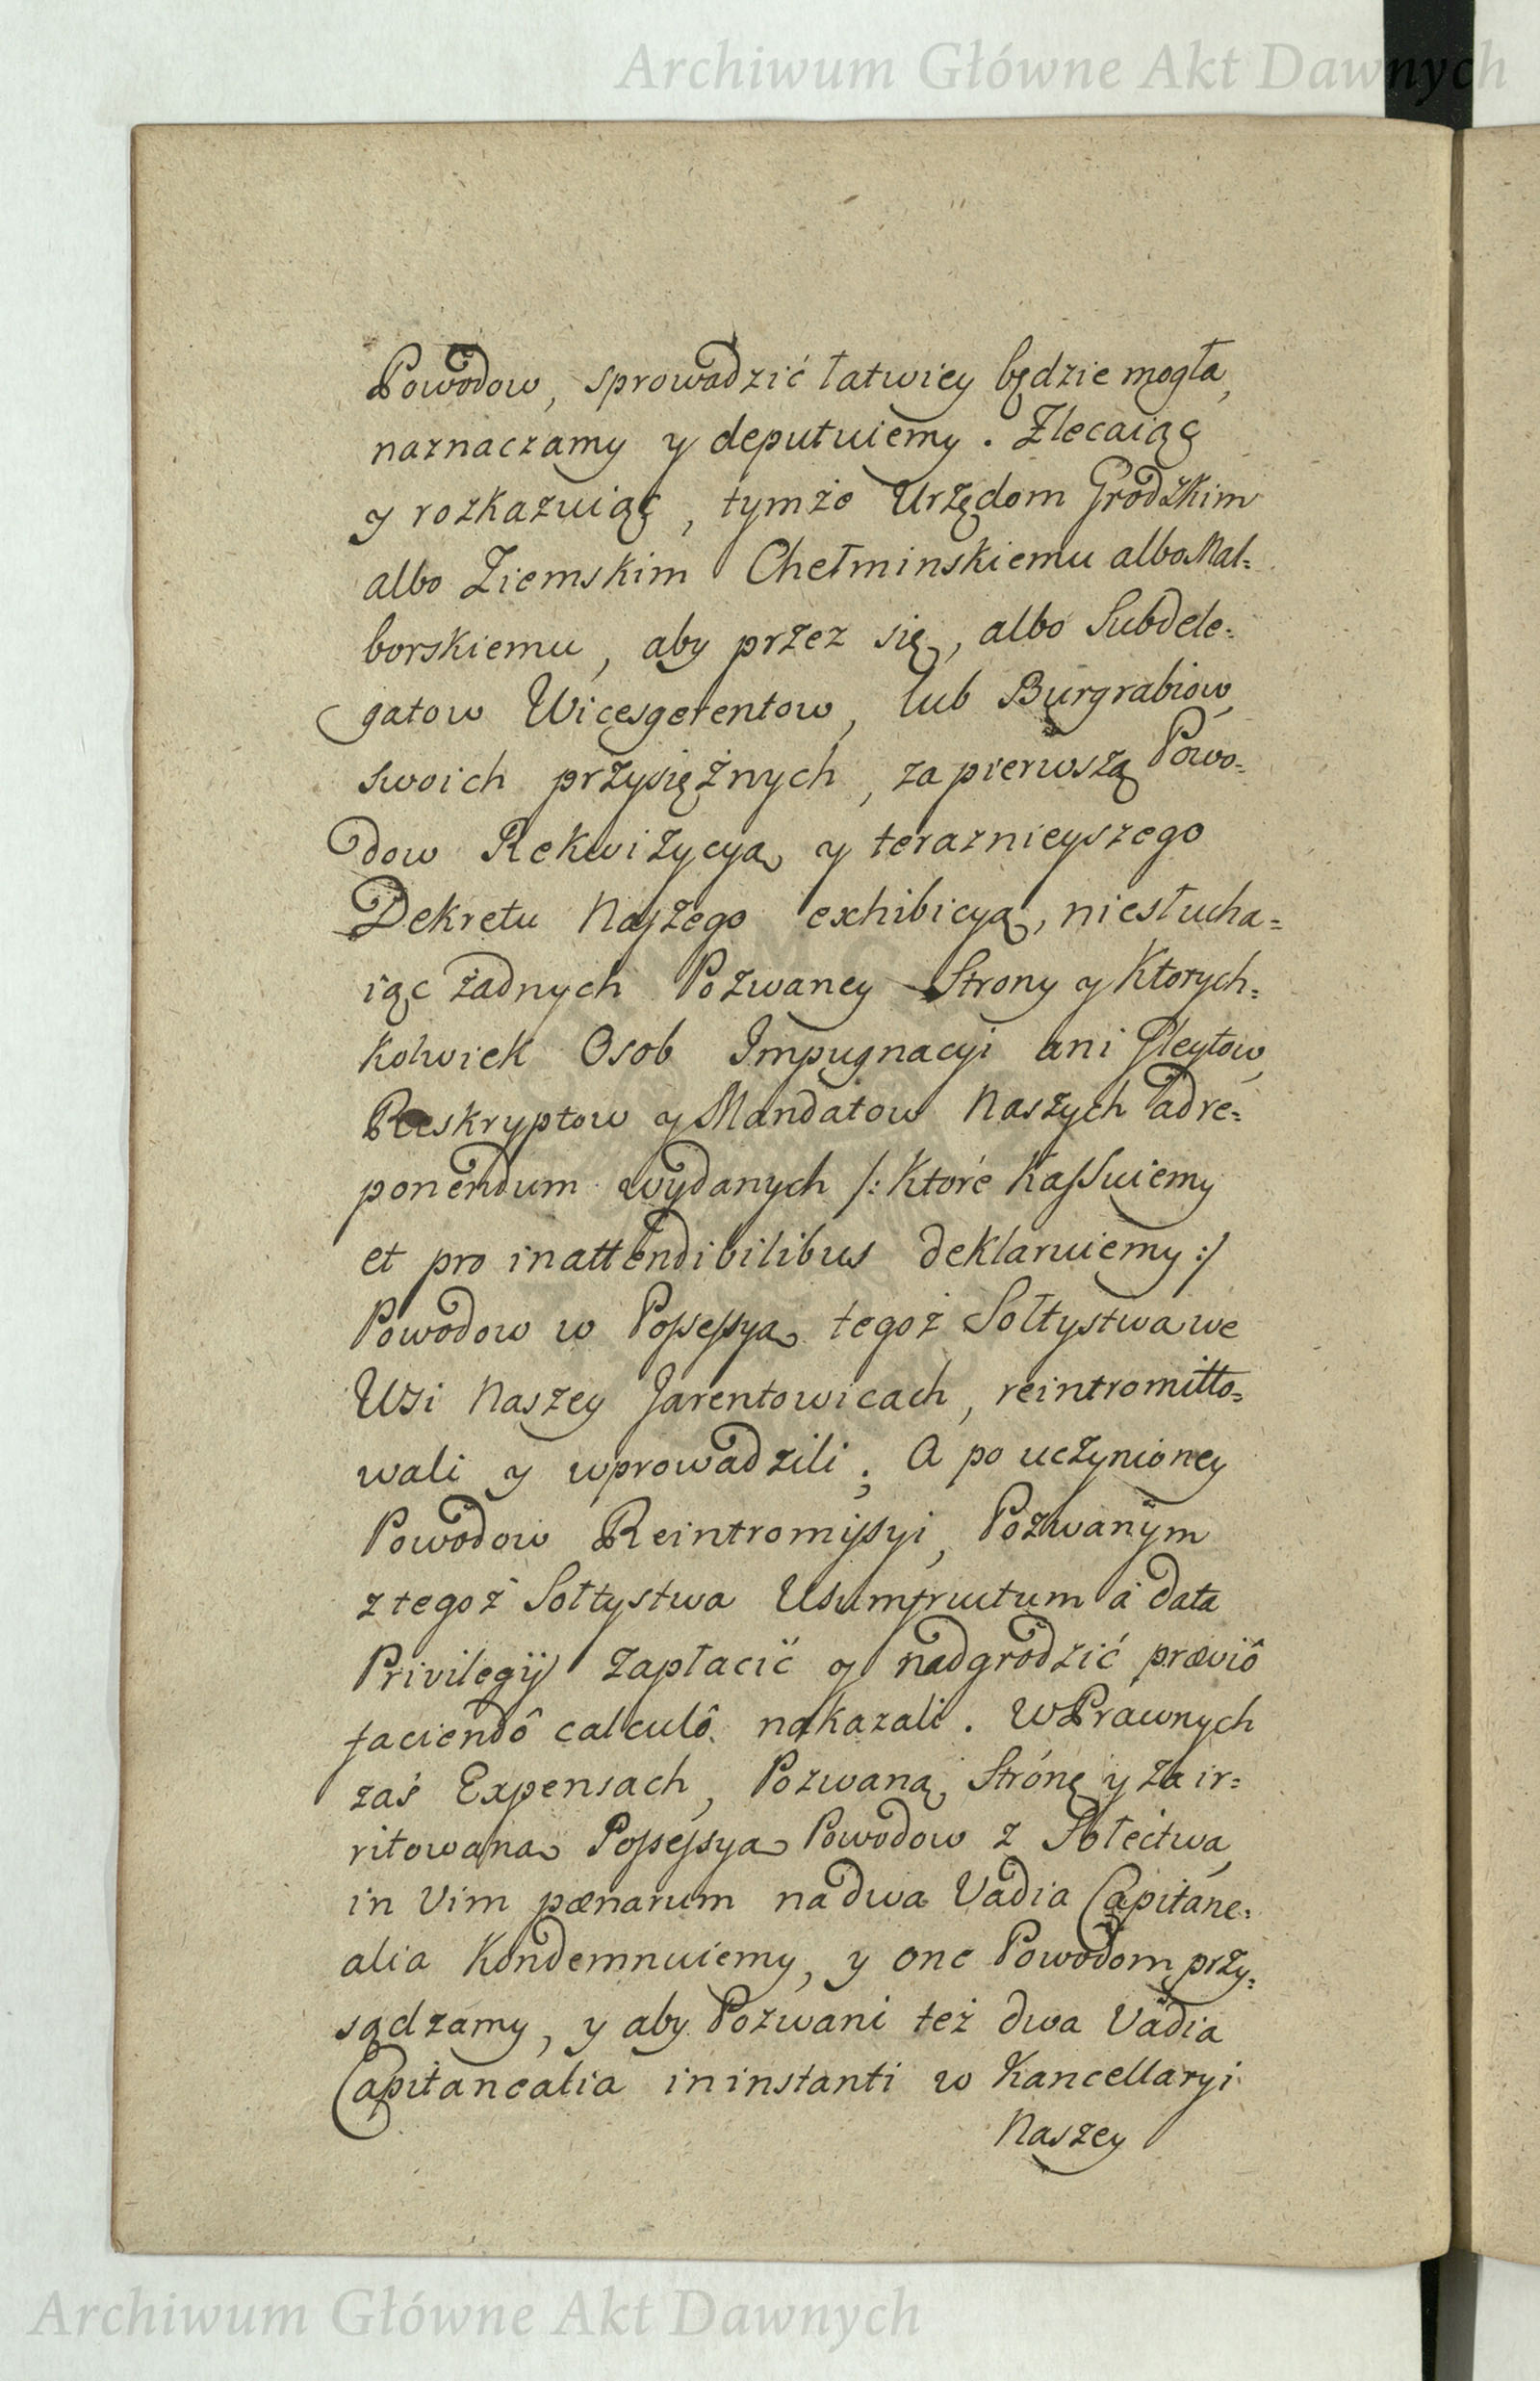 Archiwum Główne Akt Dawnych
Powodow, sprowadzić łatwiey będzie mogła,
naznaczamy y deputuiemy. Zlecaiąc
y rozkazuiąc, tymże Urzędom Grodzkim
albo Ziemskim Chełminskiemu albo Mal=
borskiemu, aby przez się, albo Subdele=
gatow Wicesgerentow, lub Burgrabiow
swoich przysiężnych, za pierwszą Powo=
dow Rekwizycyą y teraznieyszego
Dekretu Naszego exhibicyą, niesłucha=
iąc żadnych Pozwaney Strony y Ktorych=
kolwiek Osob Impugnacyi ani Gleytow,
Reskryptow y Mandatow Naszych ad re=
ponendum wydanych /: Ktore Kassuiemy
et pro inattendibilibus deklaruiemy :/
Powodow w Possessyą tegoż Sołtystwa we
Wsi Naszey Jarentowicach, reintromitto=
wali y wprowadzili; A po uczynioney
Powodow Reintromissyi, Pozwanym
z tegoż Sołtystwa Usumfructum à data
Privilegij zapłacić y nadgrodzić præviô
faciendô calculô nakazali. W Prawnych
zaś Expensach, Pozwaną Stronę y za ir=
ritowaną Possessyą Powodow z Sołectwa,
in vim pænarum na dwa Vadia Capitane=
alia Kondemnuiemy, y one Powodom przy=
sądzamy, y aby Pozwani też dwa Vadia
Capitanealia in instanti w Kancellaryi
Naszey
Archiwum Główne Akt Dawnych